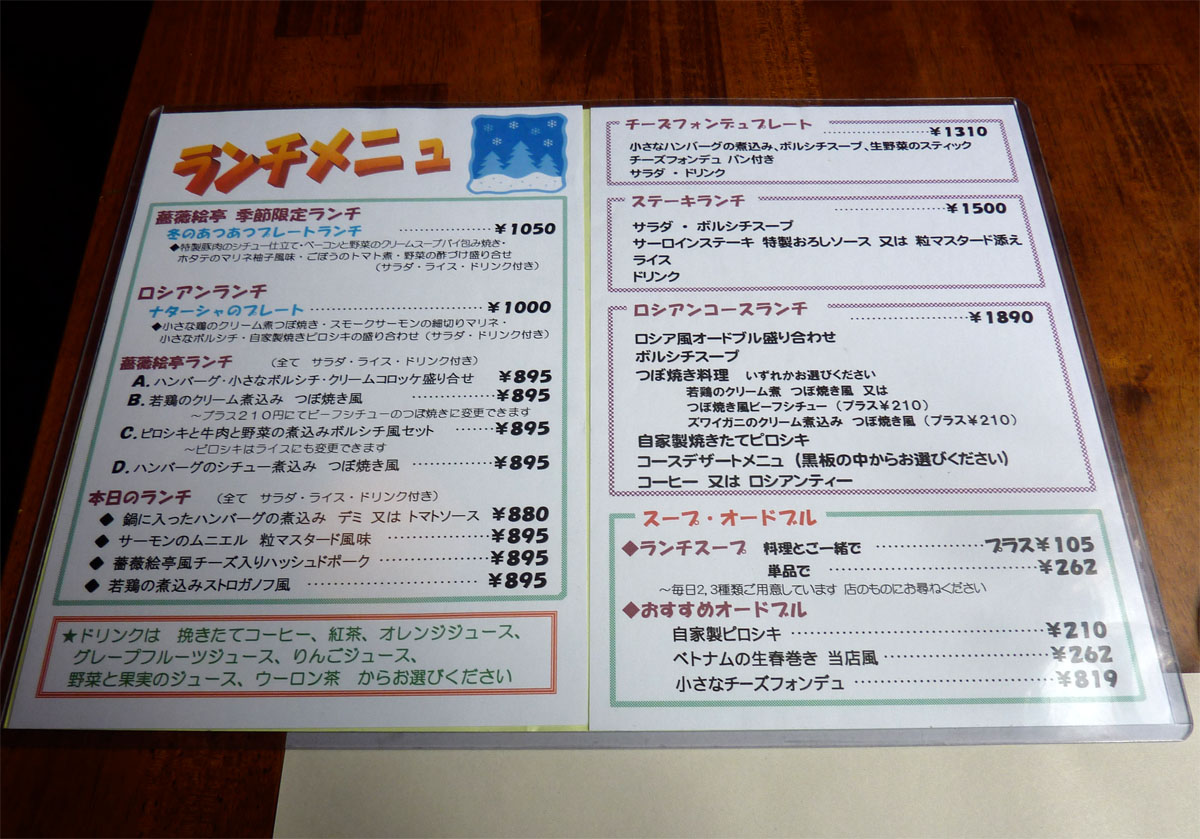 ランチメニュー
薔薇絵亭 季節限定ランチ
冬のあつあつプレートランチ ‥‥‥‥‥‥ ¥1050
◆特製豚肉のシチュー仕立て・ベーコンと野菜のクリームスープパイ包み焼き・
ホタテのマリネ柚子風味・ごぼうのトマト煮・野菜の酢づけ盛り合せ
（サラダ・ライス・ドリンク付き）
ロシアンランチ
ナターシャのプレート ‥‥‥‥‥‥ ¥1000
◆小さな鶏のクリーム煮つぼ焼き・スモークサーモンの細切りマリネ・
小さなボルシチ・自家製焼きピロシキの盛り合わせ（サラダ・ドリンク付き）
薔薇絵亭ランチ （全て サラダ・ライス・ドリンク付き）
A. ハンバーグ・小さなボルシチ・クリームコロッケ盛り合せ ¥895
B. 若鶏のクリーム煮込み つぼ焼き風 ‥‥‥‥‥‥ ¥895
～プラス210円にてビーフシチューのつぼ焼きに変更できます
C. ピロシキと牛肉と野菜の煮込みボルシチ風セット ‥‥‥ ¥895
～ピロシキはライスにも変更できます
D. ハンバーグのシチュー煮込み つぼ焼き風 ‥‥‥‥‥‥ ¥895
本日のランチ （全て サラダ・ライス・ドリンク付き）
◆ 鍋に入ったハンバーグの煮込み デミ 又は トマトソース ¥880
◆ サーモンのムニエル 粒マスタード風味 ‥‥‥‥‥‥ ¥895
◆ 薔薇絵亭風チーズ入りハッシュドポーク ‥‥‥‥‥‥ ¥895
◆ 若鶏の煮込みストロガノフ風 ‥‥‥‥‥‥ ¥895
★ドリンクは 挽きたてコーヒー、紅茶、オレンジジュース、
グレープフルーツジュース、りんごジュース、
野菜と果実のジュース、ウーロン茶 からお選びください
チーズフォンデュプレート ‥‥‥‥‥‥ ¥1310
小さなハンバーグの煮込み、ボルシチスープ、生野菜のスティック
チーズフォンデュ パン付き
サラダ ・ ドリンク
ステーキランチ ‥‥‥‥‥‥ ¥1500
サラダ ・ ボルシチスープ
サーロインステーキ 特製おろしソース 又は 粒マスタード添え
ライス
ドリンク
ロシアンコースランチ ‥‥‥‥‥‥ ¥1890
ロシア風オードブル盛り合わせ
ボルシチスープ
つぼ焼き料理 いずれかお選びください
若鶏のクリーム煮 つぼ焼き風 又は
つぼ焼き風ビーフシチュー（プラス¥210）
ズワイガニのクリーム煮込み つぼ焼き風（プラス¥210）
自家製焼きたてピロシキ
コースデザートメニュー（黒板の中からお選びください）
コーヒー 又は ロシアンティー
スープ・オードブル
◆ランチスープ 料理とご一緒で ‥‥‥‥‥‥ プラス¥105
単品で ‥‥‥‥‥‥ ¥262
～毎日2,3種類ご用意しています 店のものにお尋ねください
◆おすすめオードブル
自家製ピロシキ ‥‥‥‥‥‥ ¥210
ベトナムの生春巻き 当店風 ‥‥‥‥‥‥ ¥262
小さなチーズフォンデュ ‥‥‥‥‥‥ ¥819